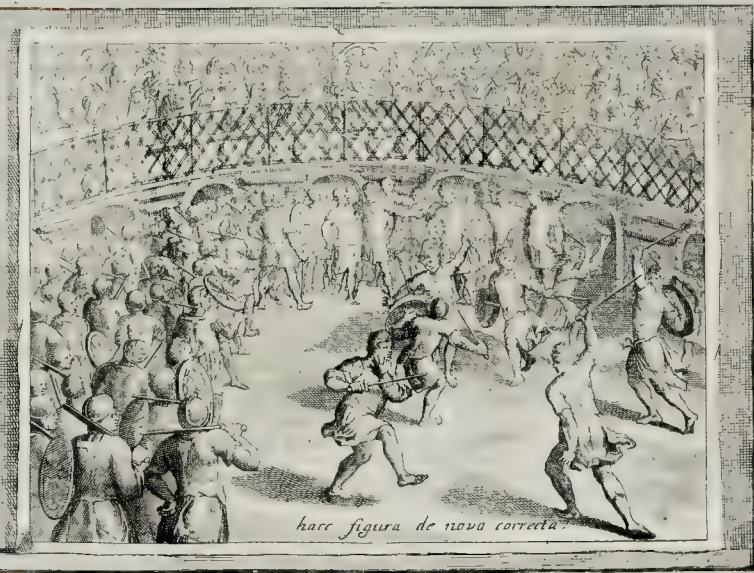 haec figura de novo correcta.